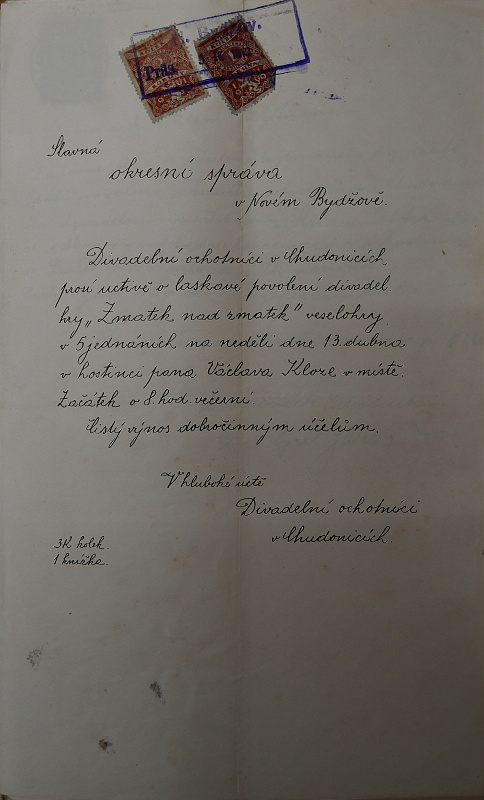 Slavná
okresní správa
v Novém Bydžově.
Divadelní ochotníci v Chudonicích
prosí uctivě o laskavé povolení divadel.
hry „Zmatek nad zmatek" veselohry
v 5 jednáních na neděli dne 13. dubna
v hostinci pana Václava Kloze v místě.
Začátek o 8. hod. večerní.
Čistý výnos dobročinným účelům.
V hluboké úctě
Divadelní ochotníci
v Chudonicích.
3K kolek.
1 knížka.